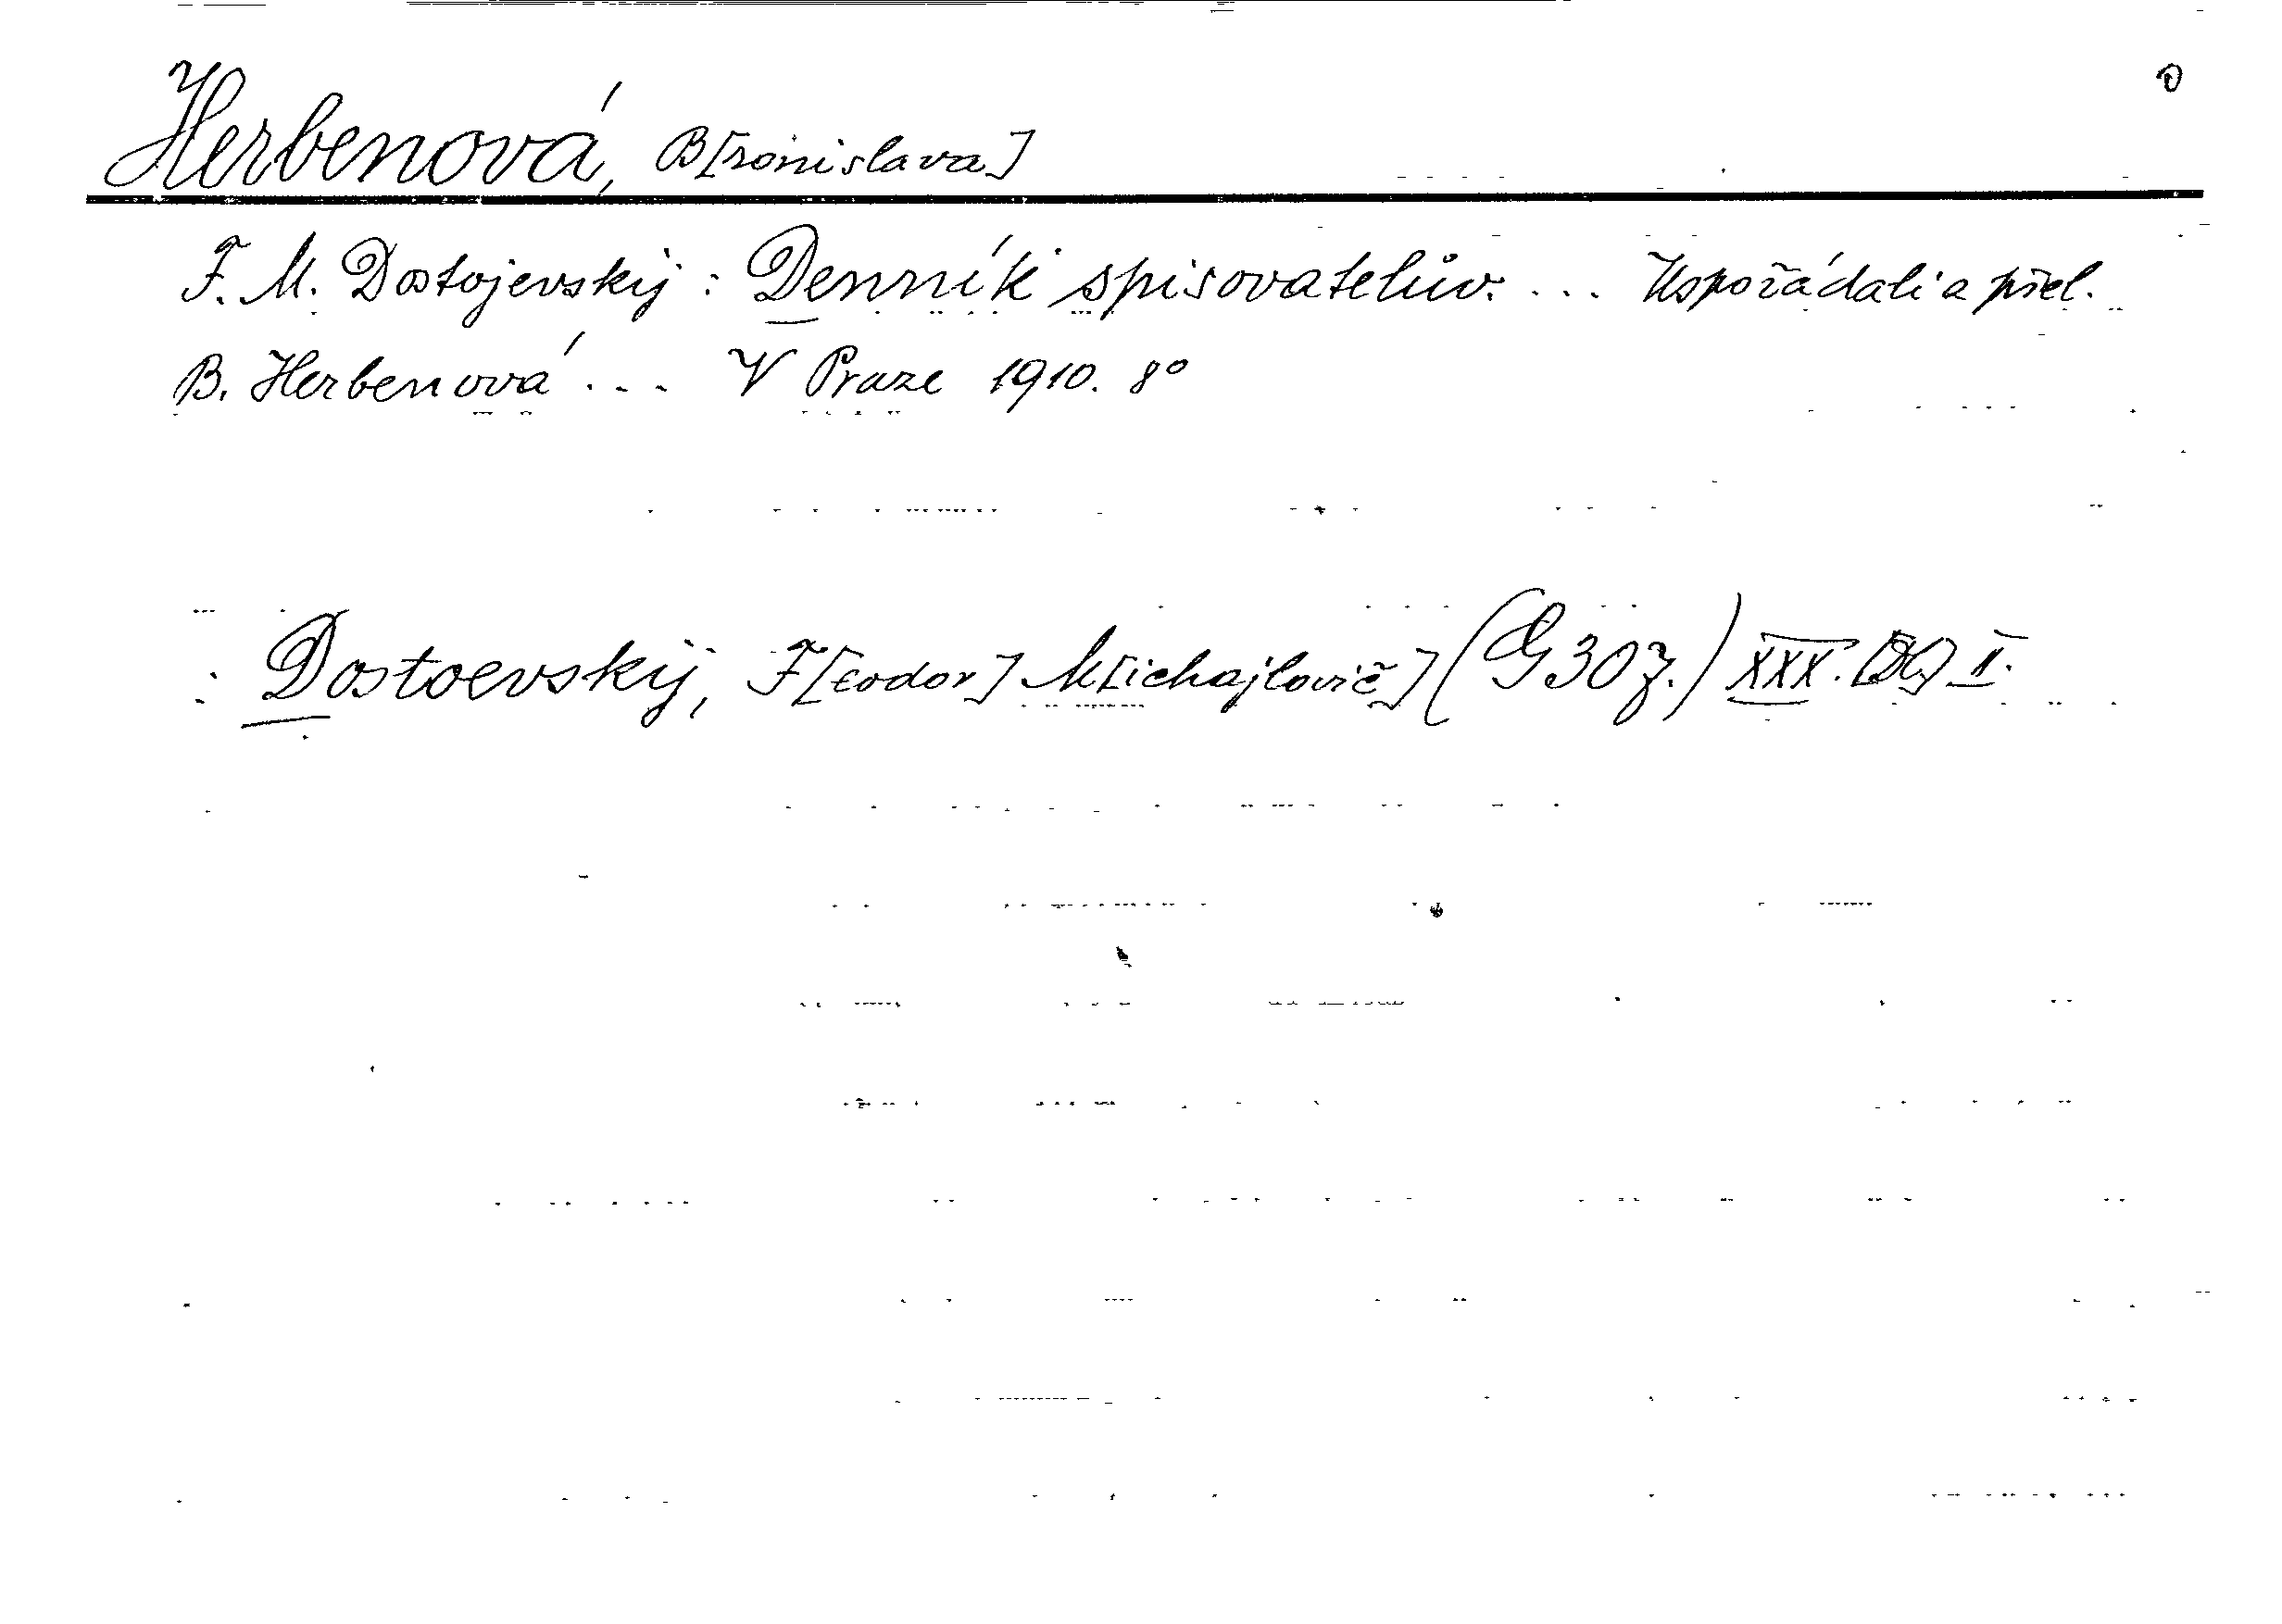 Herbenová, B[ronislava]
F. M. Dostojevskij : Denník spisovatelův. ... Uspořádali a přel.
B. Herbenová ... V Praze 1910. 8°
: Dostoevskij, F[eodor] M[ichajlovič] (G 30 z.) XXX. II.